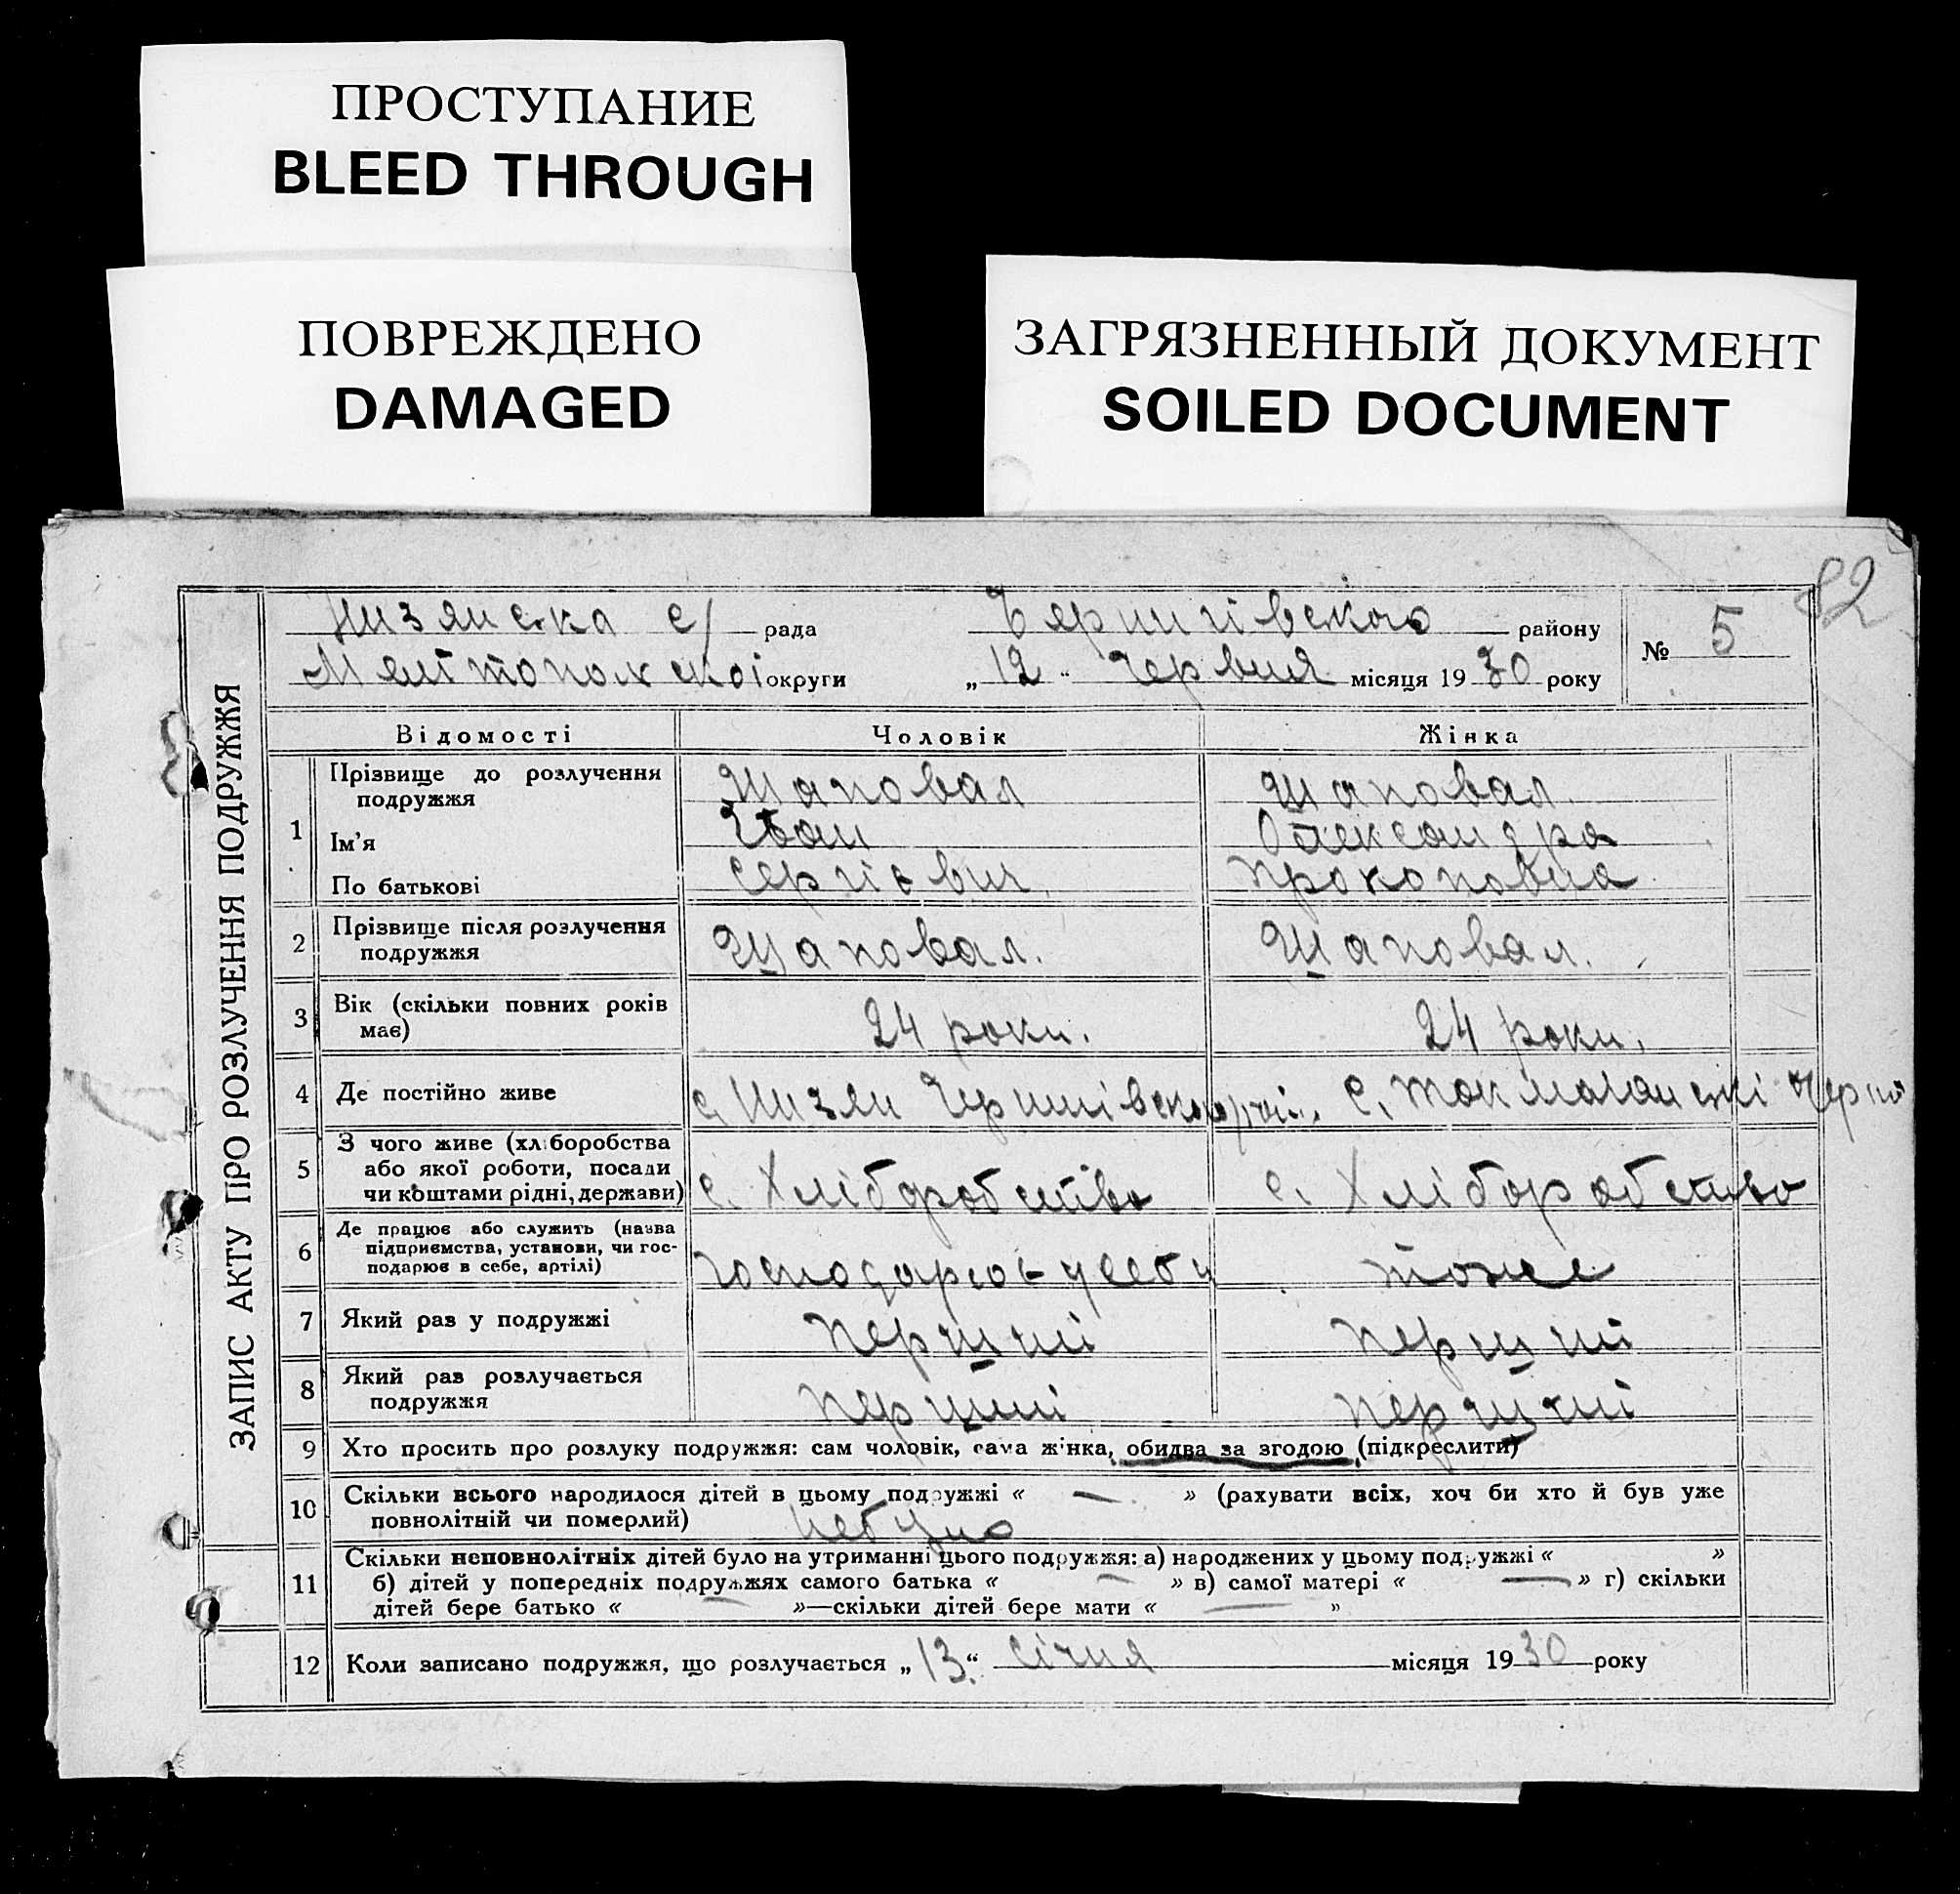 ПРОСТУПАНИЕ
BLEED THROUGH
ПОВРЕЖДЕНО
DAMAGED
ЗАГРЯЗНЕННЫЙ ДОКУМЕНТ
SOILED DOCUMENT
82
ЗАПИС АКТУ ПРО РОЗЛУЧЕННЯ ПОДРУЖЖЯ
Низянська с/ рада Чернигівского району № 5
Мелітопольскоі округи „ 12 “ червня місяця 1930 року
Відомості Чоловік Жінка
1 Прізвище до розлучення подружжя Шаповал Шаповал.
Ім'я Іван Олександра
По батькові Сергієвич Прокоповна
2 Прізвище після розлучення подружжя Шаповал. Шаповал.
3 Вік (скільки повних років має) 24 роки. 24 роки.
4 Де постійно живе с. Низяни с. Токмачанскі Черні
5 З чого живе (хліборобства або якої роботи, посади чи коштами рідні, держави) с. Хліборобство с. Хліборобство
6 Де працює або служить (назва підприємства, установи, чи господарює в себе, артілі) господарює у себе тоже
7 Який раз у подружжі перший перший
8 Який раз розлучається подружжя перший перший
9 Хто просить про розлуку подружжя: сам чоловік, сама жінка, обидва за згодою (підкреслити)
10 Скільки всього народилося дітей в цьому подружжі « — » (рахувати всіх, хоч би хто й був уже
повнолітній чи померлий) небуло
11 Скільки неповнолітніх дітей було на утриманні цього подружжя: а) народжених у цьому подружжі « »
б) дітей у попередніх подружжях самого батька « — » в) самої матері « — » г) скільки
дітей бере батько « »—скільки дітей бере мати « — »
12 Коли записано подружжя, що розлучається „ 13 “ січня місяця 1930 року